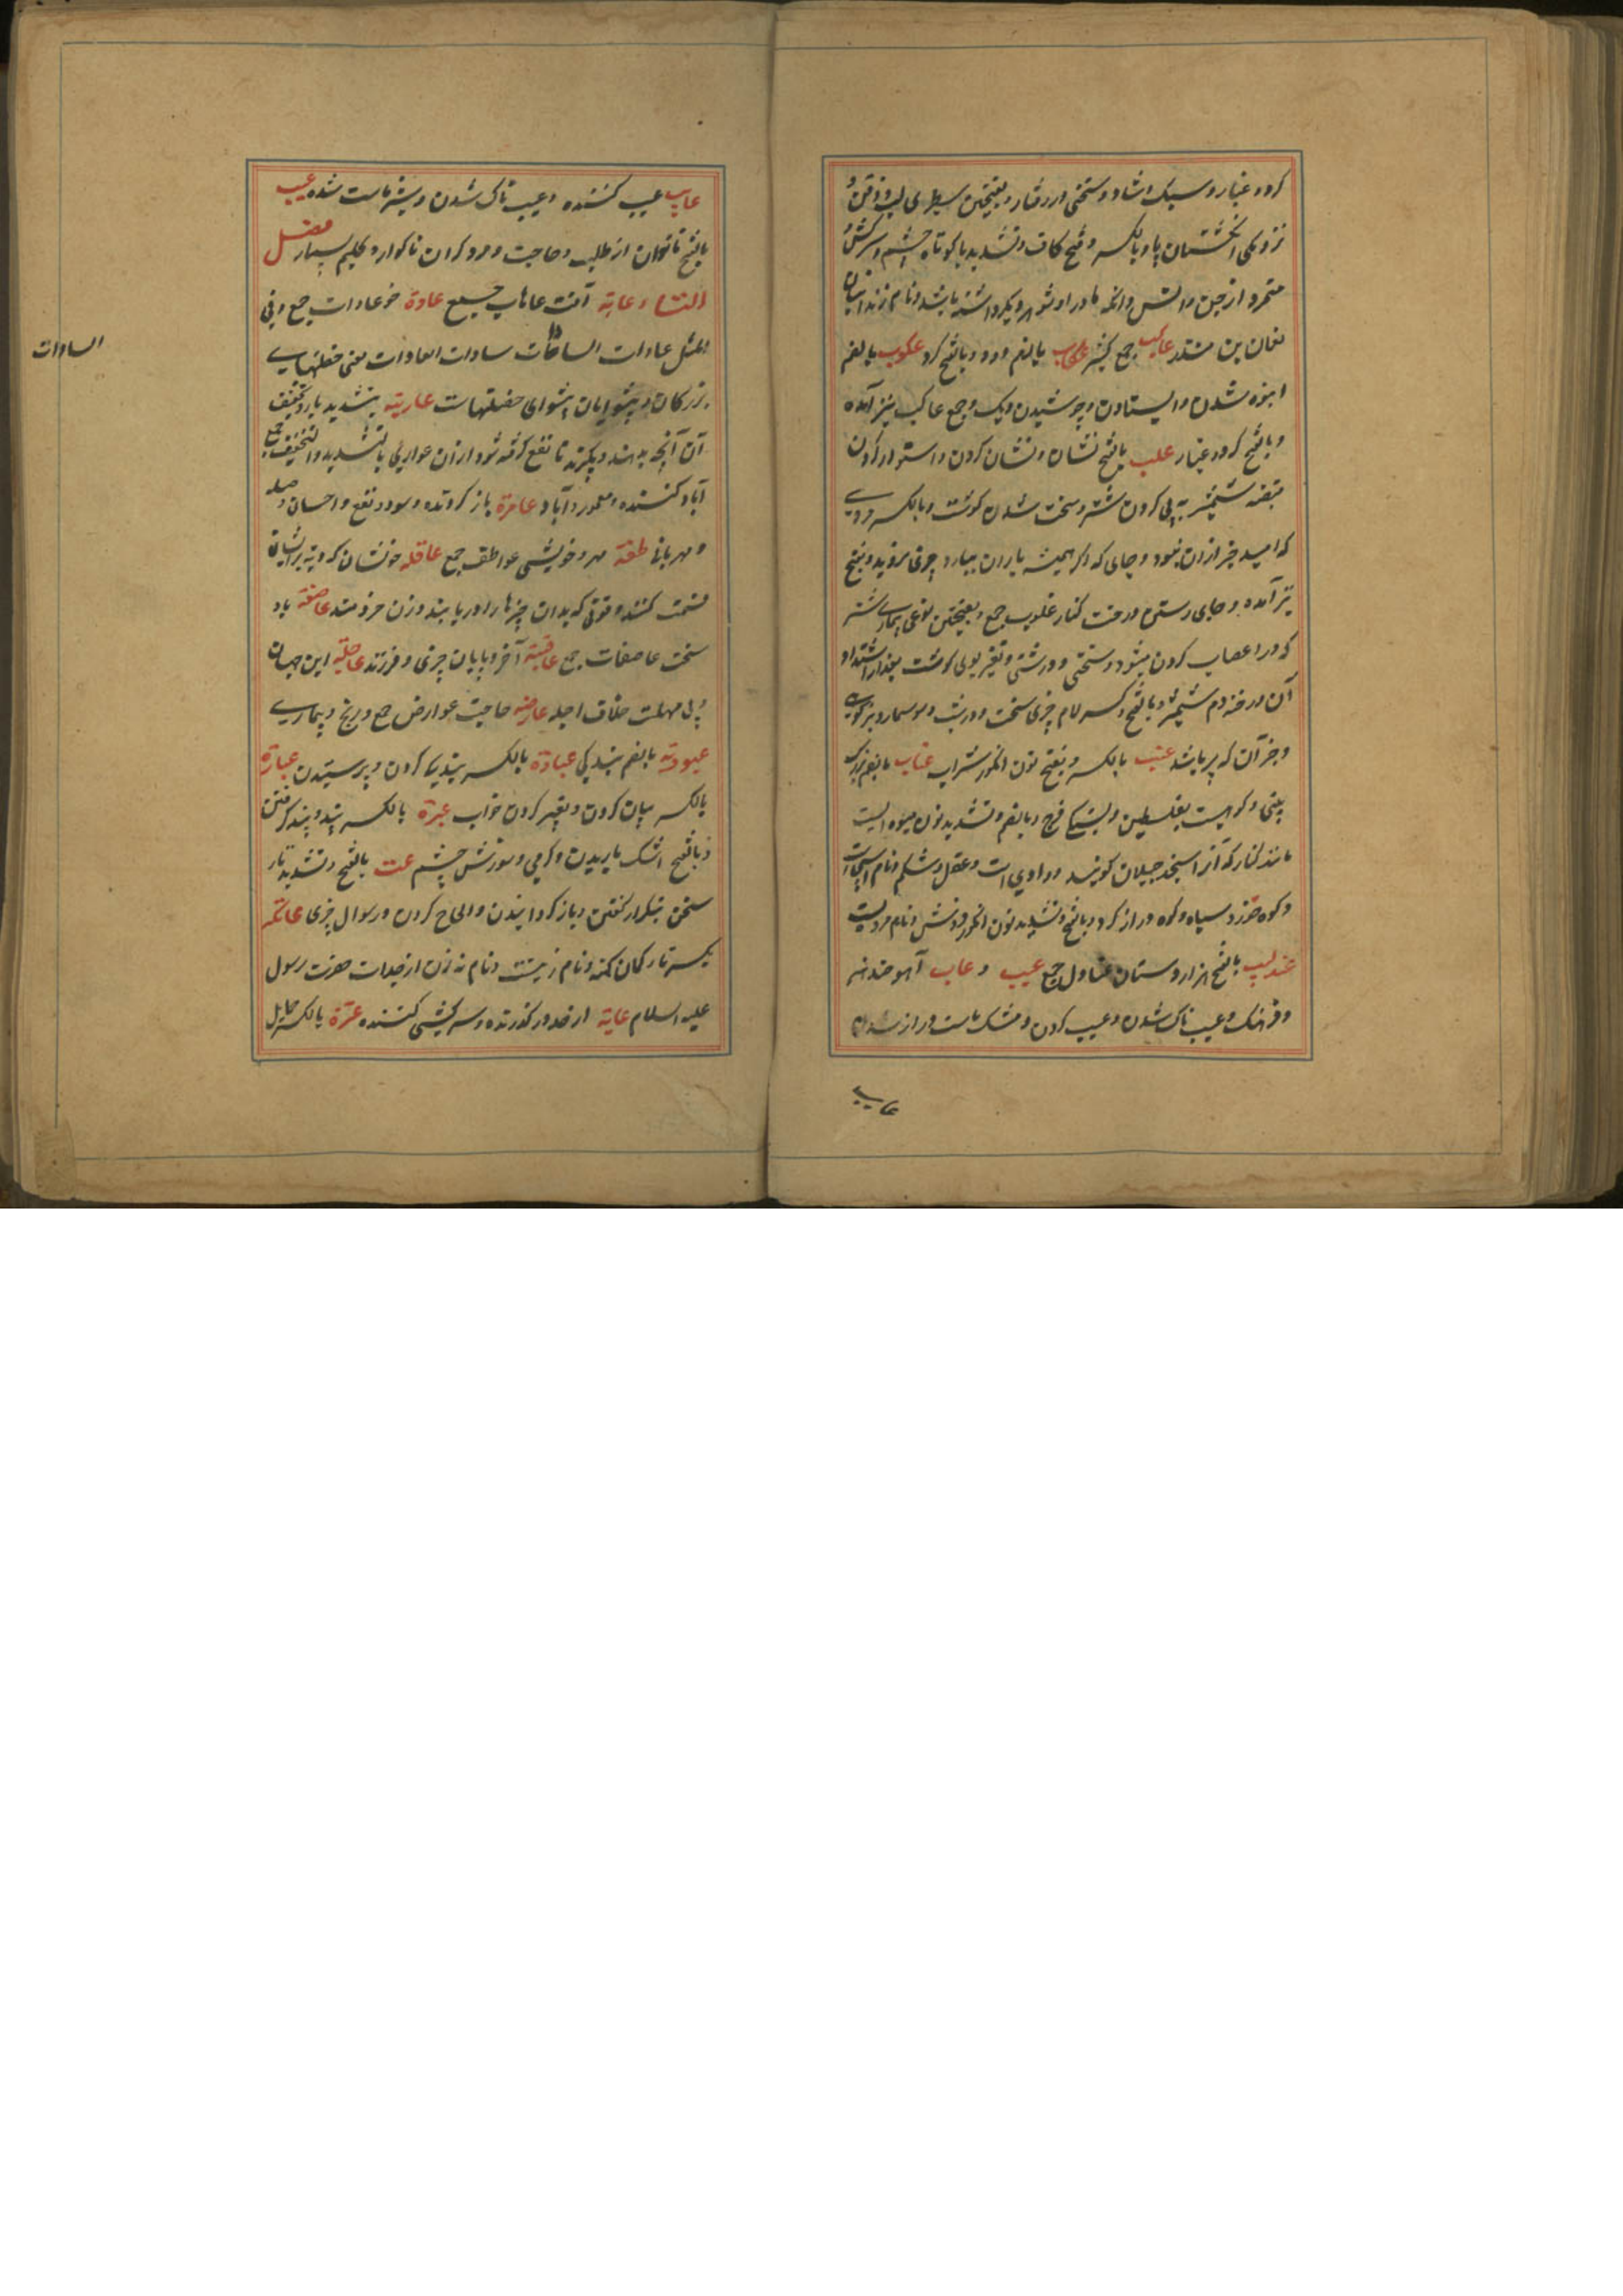 کرد و غبار و سبک و شاد و سختی در رفتار و بفتحتین سطبری لب و ذقن و
نزدیکی انگشتان پا و بالکسر و فتح کاف و تشدید با کوتاه جسم و سرکش و
متمرد از جن و انس و آنکه مادر او شوهر دیگر داشته باشد و نام زندانبان
نعمان بن منذر عاکب جمع کثیر عکاب بالضم دود و بالفتح کرد عکوب بالضم
انبوه شدن و ایستادن و جوشیدن دیک و جمع عاکب نیز آمده
و بالفتح کرد و غبار علب بالفتح نشان و نشان کردن و استوار کردن
قبضه شمشیر به پی کردن شتر و سخت شدن کوشت و بالکسر مردی
که امید خیر ازان نبود و جای که اگر همیشه باران ببارد چیزی نروید و بفتح
نیز آمده و جای رستن درخت کنار علوب جمع و بفتحتین نوعی بیماری شتر
که در اعصاب کردن میشود و سختی و درشتی و تغیر بوی کوشت بعد از اشتداد
آن و رخنه دم شمشیر و بالفتح و کسر لام چیزی سخت و درشت و سوسمار و بز کوهی
و جز آن که پیر باشد عنب بالکسر و بفتح نون انگور شراب عناب بالضم بزرک
بینی و کوهیست بفلسطین و فرج و بالضم و تشدید نون میوه ایست
مانند کنار که آنرا سنجد جیلان کویند و وادی است و عقل و شکم و نام
و کوه خورد سیاه و کوه دراز کرد و بالفتح و تشدید نون انگور فروش و نام مردیست
عندلیب بالفتح هزاردستان عنادل جمع عیب و عاب آهو ضد هنر
و فرهنک و عیب ناک شدن و عیب کردن و مشک ماست و راز
عایب
عایب عیب کننده و عیب ناک شدن و شیر ماست شده عیب
بالفتح ناتوان از طلب و حاجت و مرد کران ناکوار و کلیم بسیار فصل
التاء عاهة آفت عاهات جمع عادة خو عادات جمع و فی
المثل عادات السادات سادات العادات یعنی خصلتهای
بزرکان و پیشوایان پیشوای خصلتهاست عاریة بتشدید یا و تخفیف
آن آنچه بدهند و بکیرند تا نفع کرفته شود ازان عواری بالتشدید و التخفیف جمع
آباد کننده و معمور و آباد عامرة باز کردنده و سود و نفع و احسان و صله
و مهربانی عاطفة مهر و خویشی عواطف جمع عاقلة خویشان که دیت برایشان
قسمت کنند و قوتی که بدان چیزها را دریابند و زن خردمند عاصفة باد
سخت عاصفات جمع عاقبة آخر و پایان چیزی و فرزند عاجلة این جهان
بی مهلت خلاف آجله عارضة حاجت عوارض جمع و رنج و بیماری
عبودیة بالضم بندکی عبادة بالکسر بندکی کردن و پرستیدن عبارة
بالکسر بیان کردن و تعبیر کردن خواب عبرة بالکسر پند و پند کرفتن
و بالفتح اشک باریدن و کرمی و سوزش چشم عت بالفتح و تشدید تا
سخن بتکرار کفتن و باز کردانیدن و الحاح کردن در سوال چیزی عاتکة
یکسر تار کمان کهنه و نام زنیست و نام نه زن از جدات حضرت رسول
علیه السلام عاتیة از حد در کذرنده و سرکشی کننده عترة بالکسر
السادات